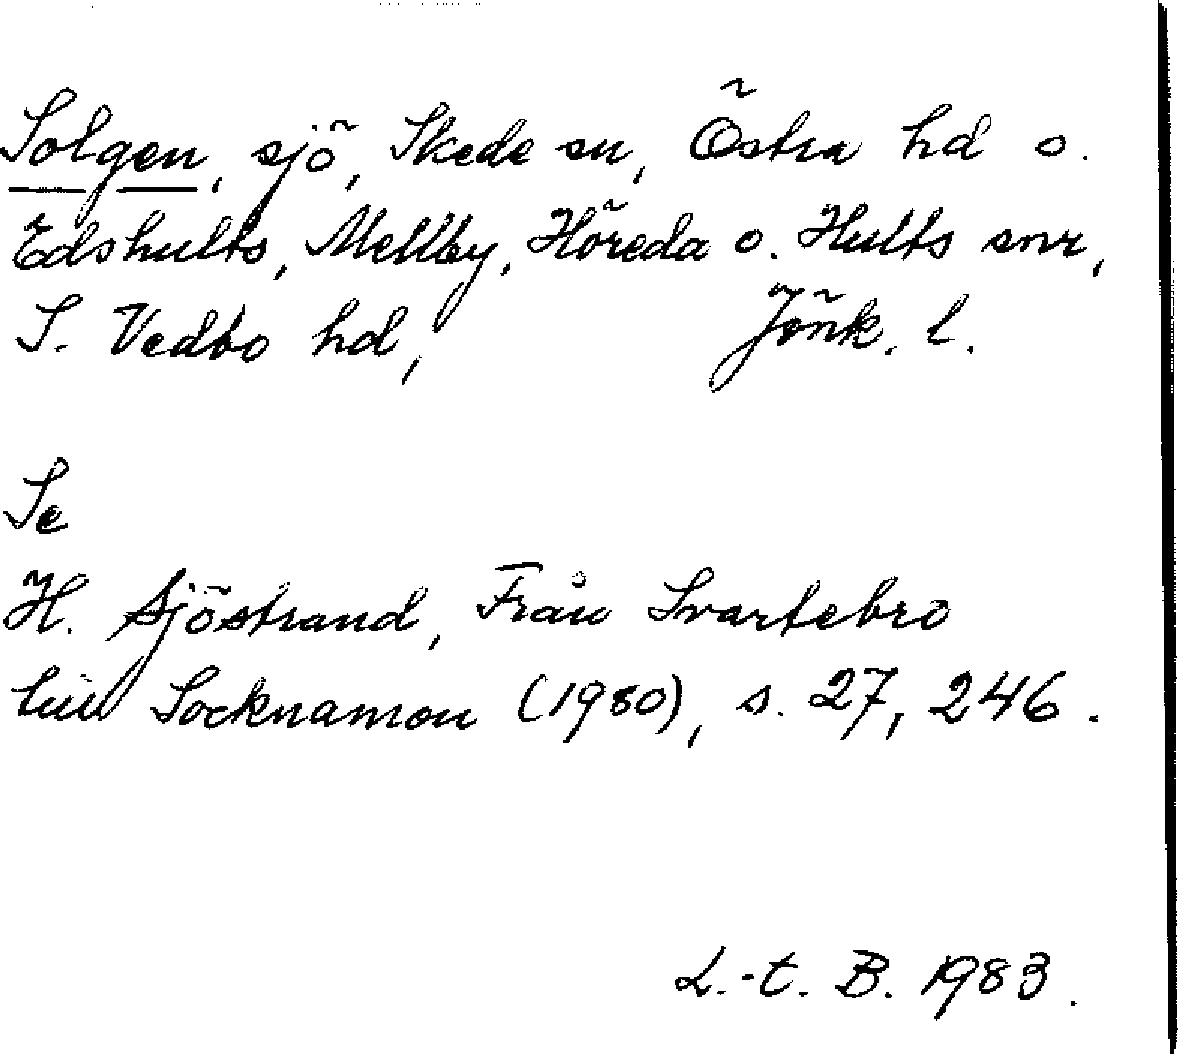 Solgen, sjö, Skede sn, Östra hd o.
Edshults, Mellby, Höreda o. Hults snr,
S. Vedbo hd, Jönk. l.
Se
H. Sjöstrand, Från Svartebro
till Socknamon (1980), s. 27, 246.
L.-t. B. 1983.